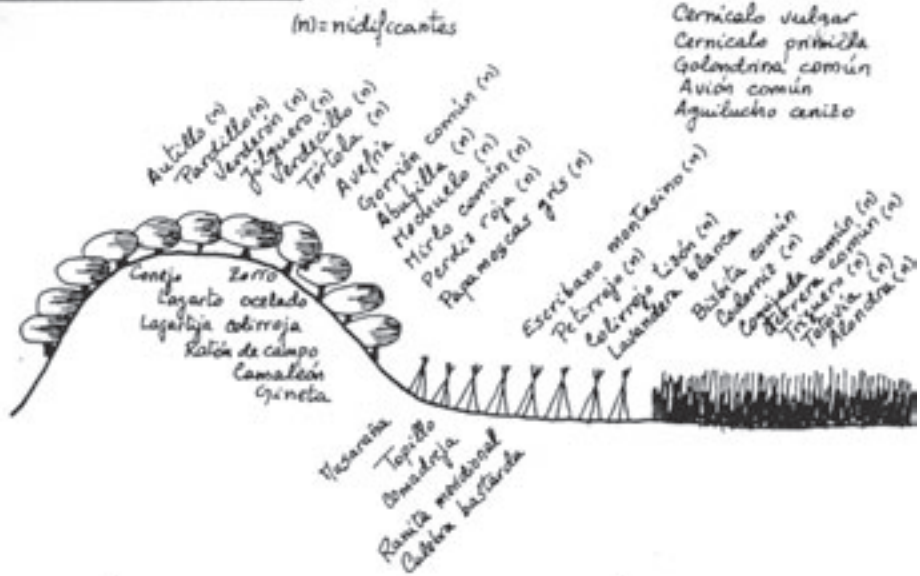 (n)=nidificantes
Cernícalo vulgar
Cernícalo primilla
Golondrina común
Avión común
Aguilucho cenizo
Autillo (n)
Pardillo (n)
Verderón (n)
Jilguero (n)
Verdecillo (n)
Tórtola (n)
Avefría
Gorrión común (n)
Abubilla (n)
Mochuelo (n)
Mirlo común (n)
Perdiz roja (n)
Papamoscas gris (n)
Escribano montesino (n)
Petirrojo (n)
Colirrojo tizón (n)
Lavandera blanca
Bisbita común
Codorniz (n)
Cogujada común (n)
Terrera común (n)
Triguero (n)
Totovía (n)
Alondra (n)
Conejo Zorro
Lagarto ocelado
Lagartija colirroja
Ratón de campo
Camaleón
Gineta
Musaraña
Topillo
Comadreja
Ranita meridional
Culebra bastarda